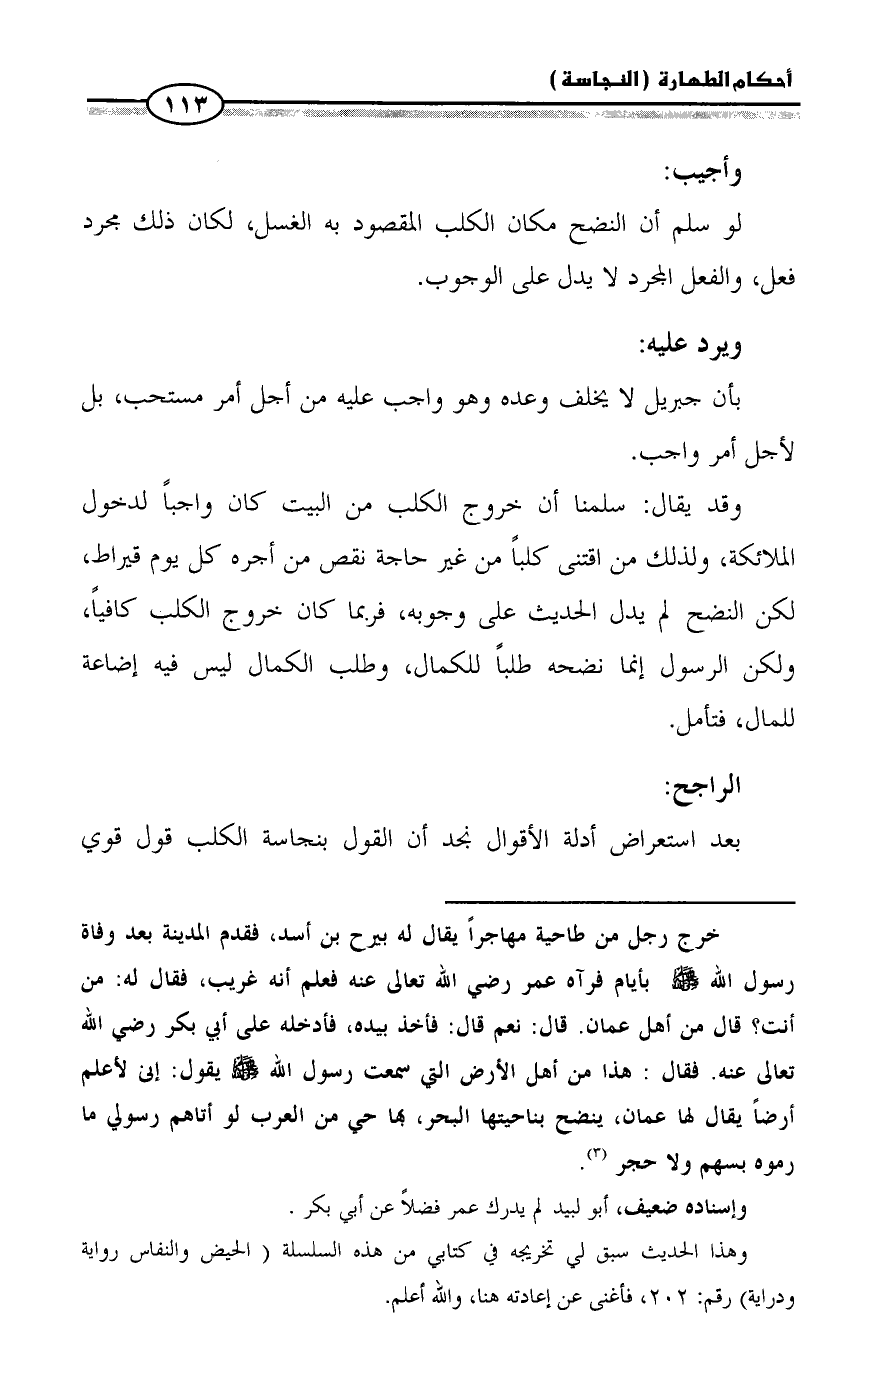 أحكام الطهارة (النجاسة)
١١٣
وأجيب:
لو سلم أن النضح مكان الكلب المقصود به الغسل، لكان ذلك مجرد
فعل، والفعل المجرد لا يدل على الوجوب.
ويرد عليه:
بأن جبريل لا يخلف وعده وهو واجب عليه من أجل أمر مستحب، بل
لأجل أمر واجب.
وقد يقال: سلمنا أن خروج الكلب من البيت كان واجباً لدخول
الملائكة، ولذلك من اقتنى كلباً من غير حاجة نقص من أجره كل يوم قيراط،
لكن النضح لم يدل الحديث على وجوبه، فربما كان خروج الكلب كافياً،
ولكن الرسول إنما نضحه طلباً للكمال، وطلب الكمال ليس فيه إضاعة
للمال، فتأمل.
الراجح:
بعد استعراض أدلة الأقوال نجد أن القول بنجاسة الكلب قول قوي
خرج رجل من طاحية مهاجراً يقال له بيرح بن أسد، فقدم المدينة بعد وفاة
رسول الله ﷺ بأيام فرآه عمر رضي الله تعالى عنه فعلم أنه غريب، فقال له: من
أنت؟ قال من أهل عمان. قال: نعم قال: فأخذ بيده، فأدخله على أبي بكر رضي الله
تعالى عنه. فقال : هذا من أهل الأرض التي سمعت رسول الله ﷺ يقول: إنى لأعلم
أرضاً يقال لها عمان، ينضح بناحيتها البحر، بها حي من العرب لو أتاهم رسولي ما
رموه بسهم ولا حجر (٣).
وإسناده ضعيف، أبو لبيد لم يدرك عمر فضلاً عن أبي بكر .
وهذا الحديث سبق لي تخريجه في كتابي من هذه السلسلة ( الحيض والنفاس رواية
ودراية) رقم: ٢٠٢، فأغنى عن إعادته هنا، والله أعلم.